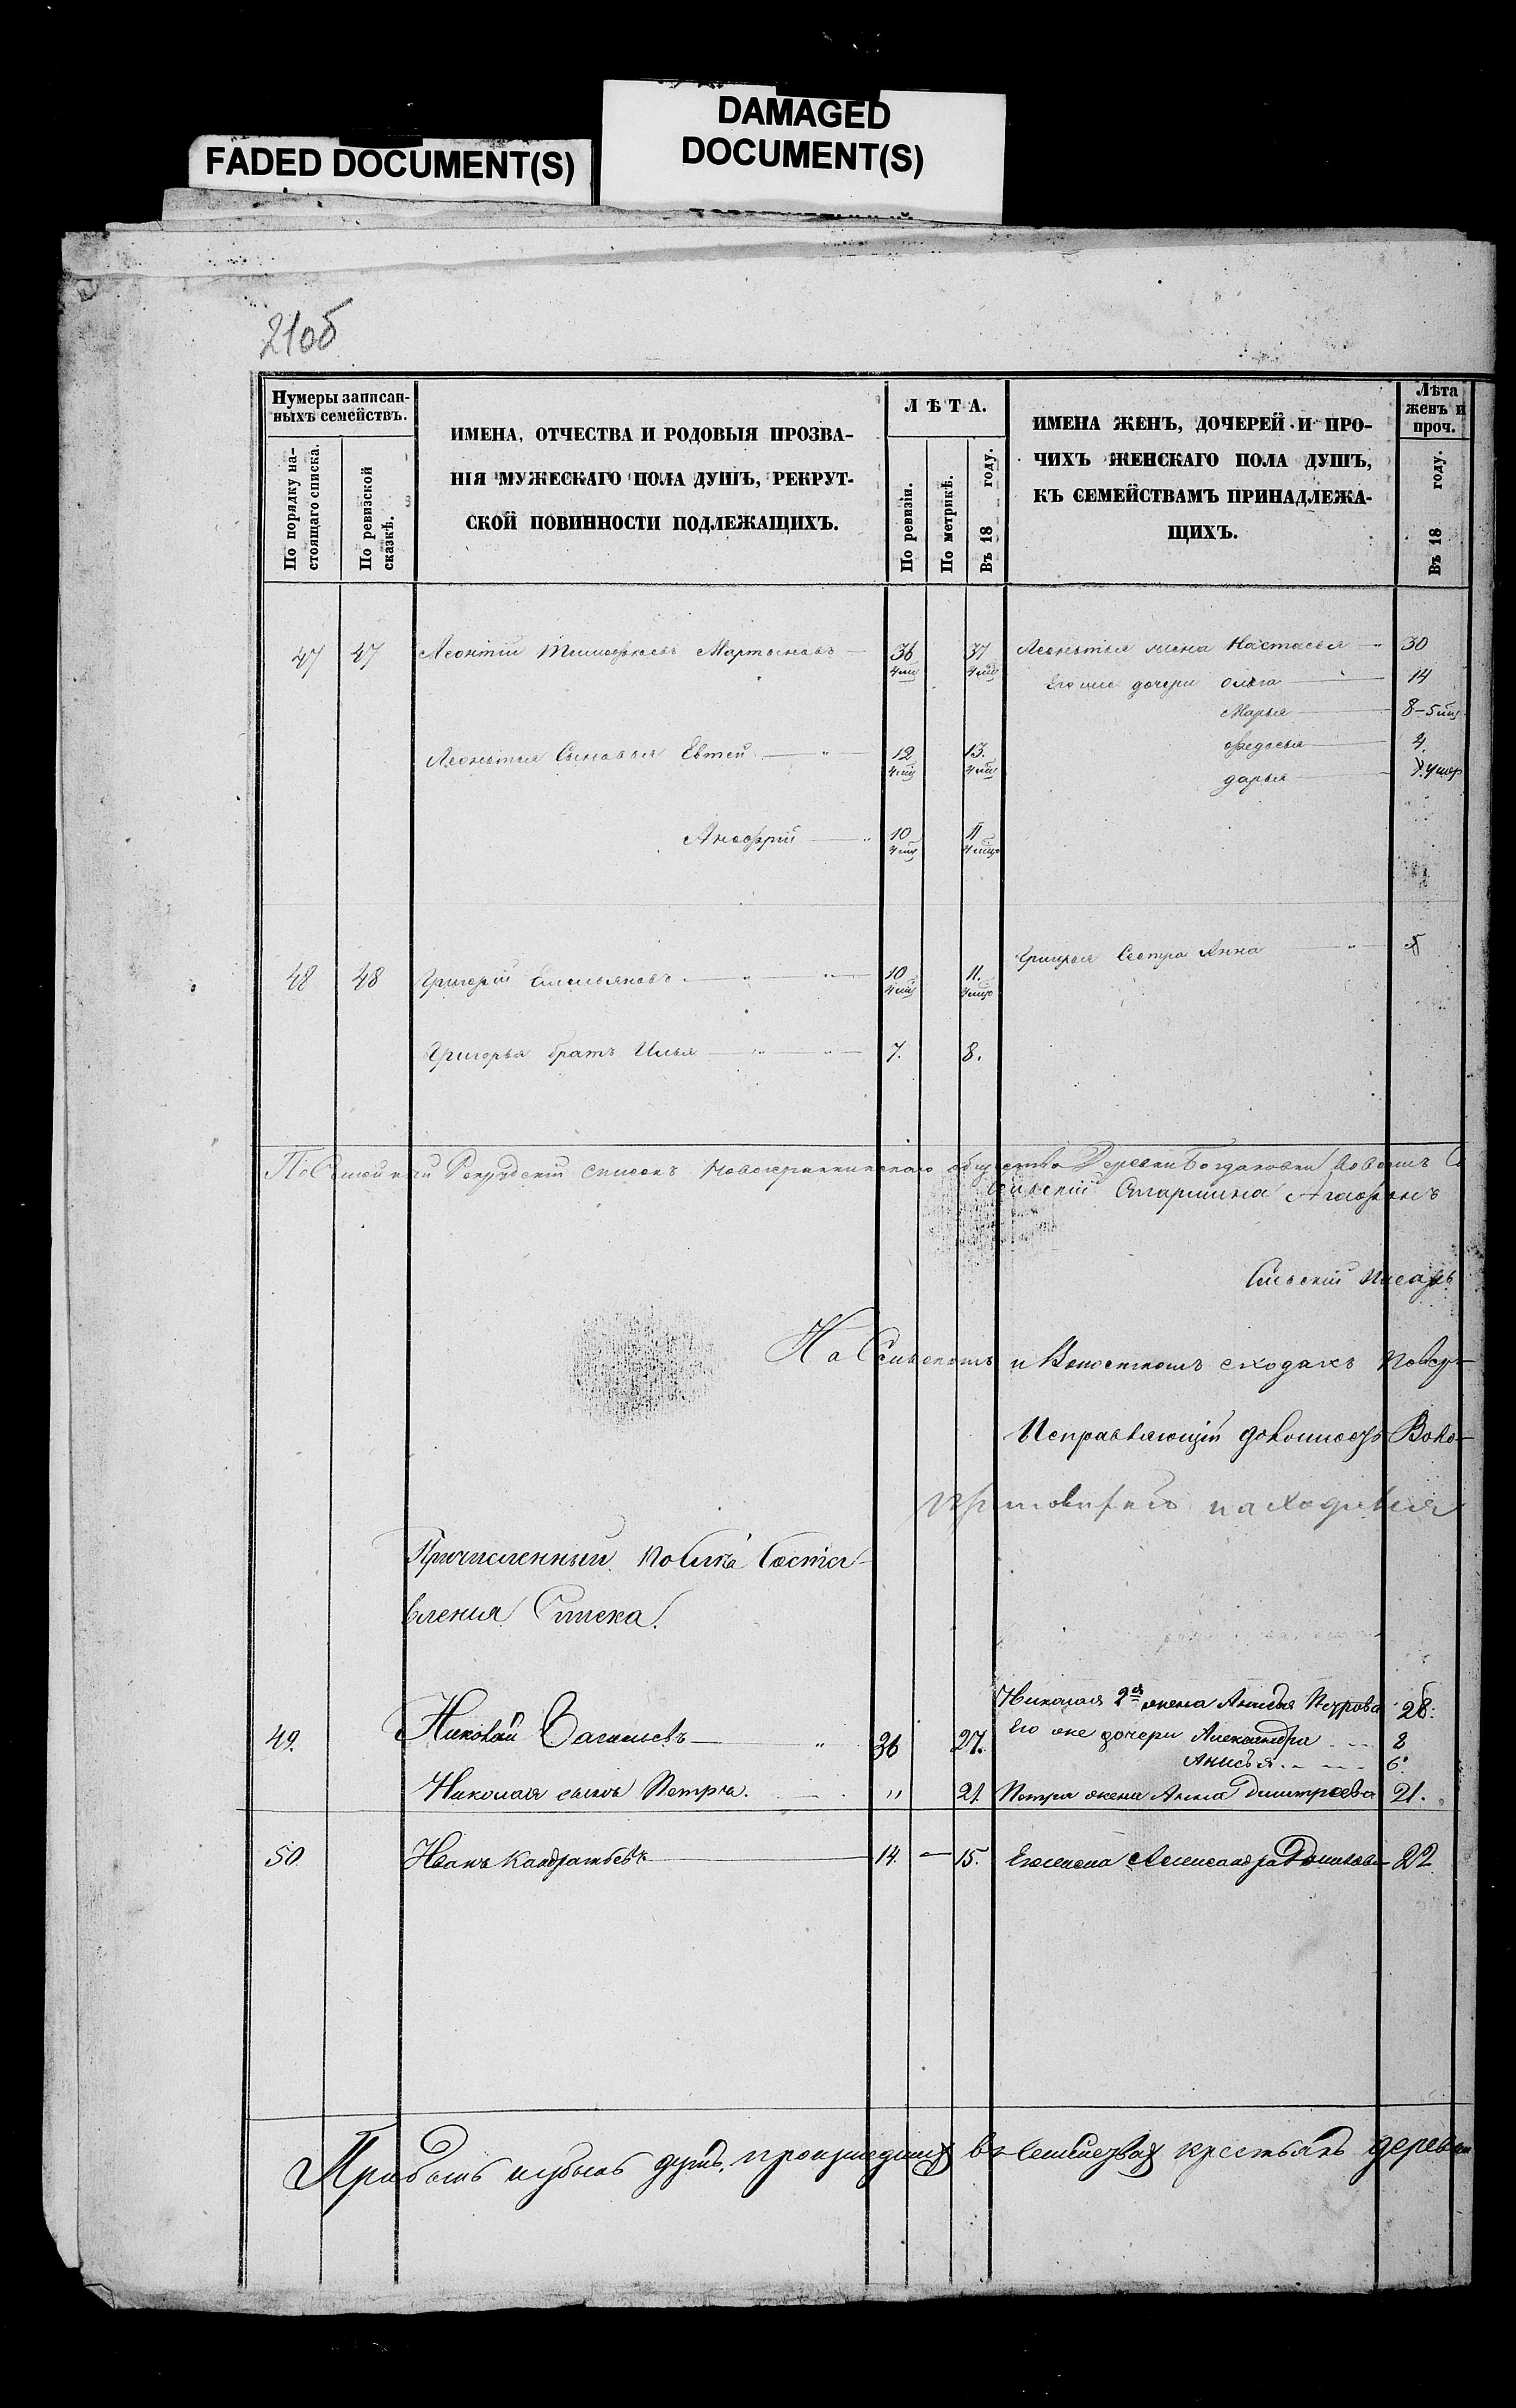 FADED DOCUMENT(S)
DAMAGED
DOCUMENT(S)
21об
Нумеры записан-
ныхъ семействъ.
По порядку на-
стоящаго списка.
По ревизской
сказкѣ.
ИМЕНА, ОТЧЕСТВА И РОДОВЫЯ ПРОЗВА-
НІЯ МУЖЕСКАГО ПОЛА ДУШЪ, РЕКРУТ-
СКОЙ ПОВИННОСТИ ПОДЛЕЖАЩИХЪ.
ЛѢТА.
По ревизіи.
По метрикѣ.
Въ 18 году.
ИМЕНА ЖЕНЪ, ДОЧЕРЕЙ И ПРО-
ЧИХЪ ЖЕНСКАГО ПОЛА ДУШЪ,
КЪ СЕМЕЙСТВАМЪ ПРИНАДЛЕЖА-
ЩИХЪ.
Лѣта
женъ и
проч.
Въ 18 году.
47 47 Леонтій Тимофеевъ Мартыновъ — 36 37 Леонтья жена Настасья — 30
Его же дочери Ольга — 14
Марья — 8-5
Федосья — 4
Леонтья Сыновья Евтей — 12 13.
дарья —
Анофрій — 10 11
Григорья Сестра Анна — 5
48 48 Григорій Емельяновъ — 10 11.
Григорья братъ Илья — 7. 8.
Рекрудскій списокъ общества Деревни
Сельскій Старшина Агафонъ
Сельскій Писарь
На Сельскомъ и Волостномъ сходахъ повер-
Исправляющій должность Воло-
находился
Причисленный послѣ Соста-
вленія Списка.
Николая 2я жена Анисья Петрова 28.
49. Николай Васильевъ — 36 27. Его же дочери Александра 8
Анисья 6.
Николая сынъ Петръ. " 21. Петра жена Анна Дмитриева 21.
50 Иванъ Кандратьевъ — 14. — 15. Его жена Александра 22.
Прибыль и убыль душъ, происшедших в семействах крестьянъ деревни